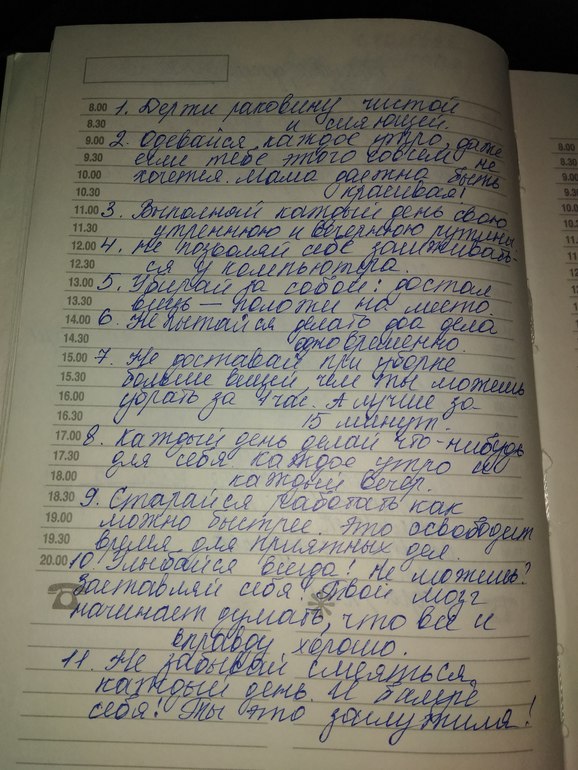 8.00 1. Держи раковину чистой
8.30 и сияющей.
9.00 2. Одевайся каждое утро, даже
9.30 если тебе этого совсем не
10.00 хочется. Мама должна быть
10.30 красивая!
11.00 3. Выполняй каждый день свою
11.30 утреннюю и вечернюю рутины
12.00 4. Не позволяй себе засиживать-
12.30 ся у компьютера.
13.00 5. Убирай за собой: достал
13.30 вещь — положи на место.
14.00 6. Не пытайся делать два дела
14.30 одновременно.
15.00 7. Не доставай при уборке
15.30 больше вещей, чем ты можешь
16.00 убрать за 1 час. А лучше за
16.30 15 минут.
17.00 8. Каждый день делай что-нибудь
17.30 для себя. Каждое утро и
18.00 каждый вечер.
18.30 9. Старайся работать как
19.00 можно быстрее. Это освободит
19.30 время для приятных дел.
20.00 10. Улыбайся всегда! Не можешь?
Заставляй себя! Твой мозг
начинает думать, что все и
вправду хорошо.
11. Не забывай смеяться
каждый день. И балуе
себя! Ты это заслужила!
8.00
8.30
9.00
9.30